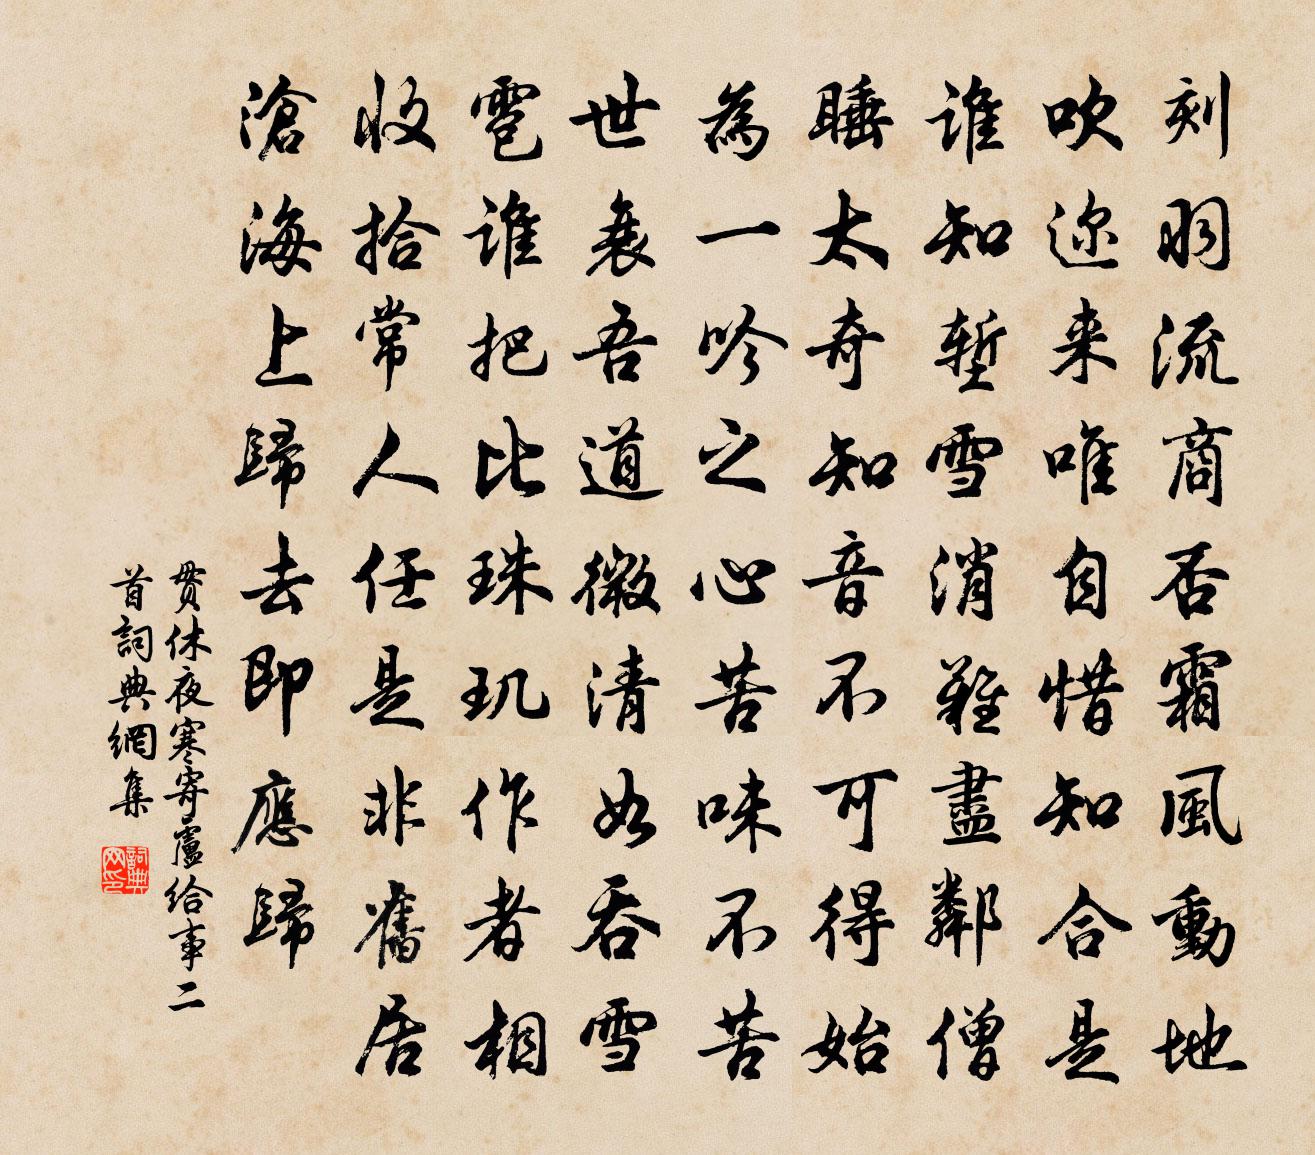 刻羽流商否霜風動地
吹邇来唯自惜知合是
誰知塹雪消難盡鄰僧
睡太奇知音不可得始
為一吟之心苦味不苦
世衰吾道微清如吞雪
雹誰把比珠玑作者相
收拾常人任是非舊居
滄海上歸去即應歸
贯休夜寒寄盧给事二
首詞典網集
詞典
网印